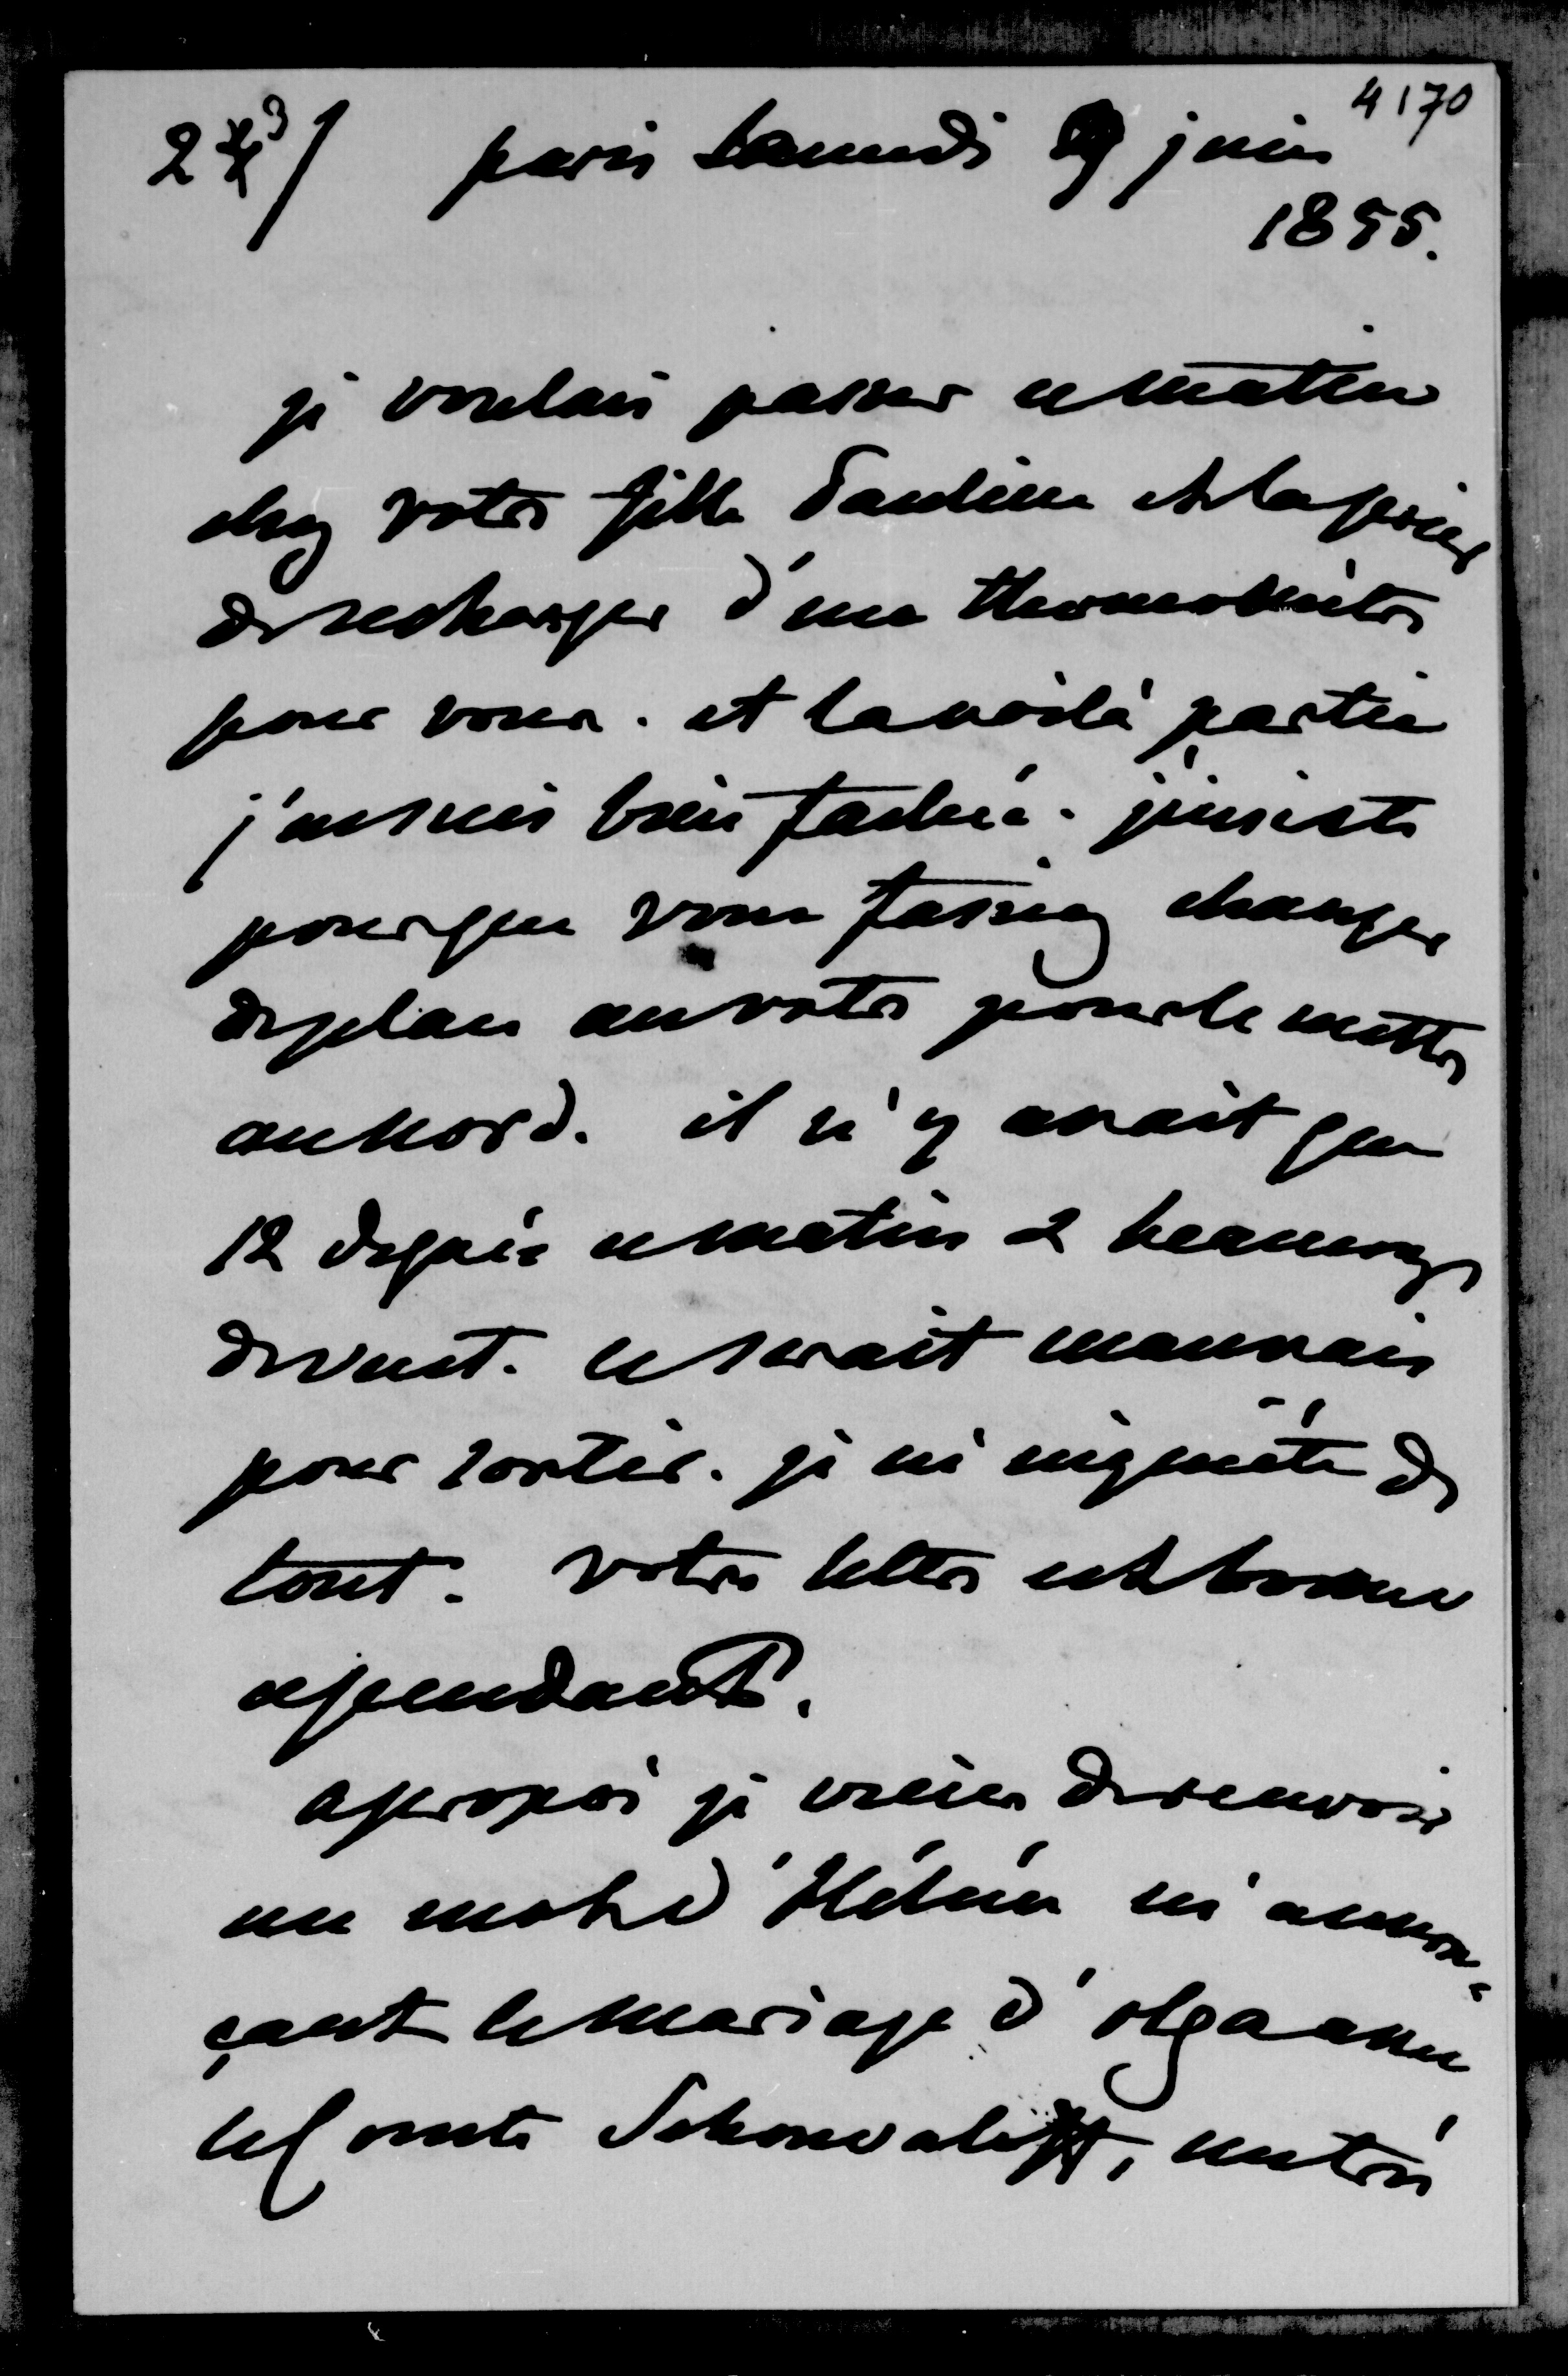 4170
23/ paris samedi 9 juin
1855.
je voulais passer ce matin
chez votre fille Pauline et la prier
de se charger d'un thermomètre
pour vous. et la voilà partie
j'en suis bien fachée. j'insiste
pour que vous fassiez changer
de place au votre pour le mettre
au nord. il n'y avait que
12 degrés ce matin & beaucoup
de vent. ce serait mauvais
pour sortir. je m'inquiète de
tout. votre lettre est bonne
cependant.
apropos je viens de recevoir
un mot d'Hélène m'annon-
çant le mariage d'olga avec
le Comte Schouvaloff, entré